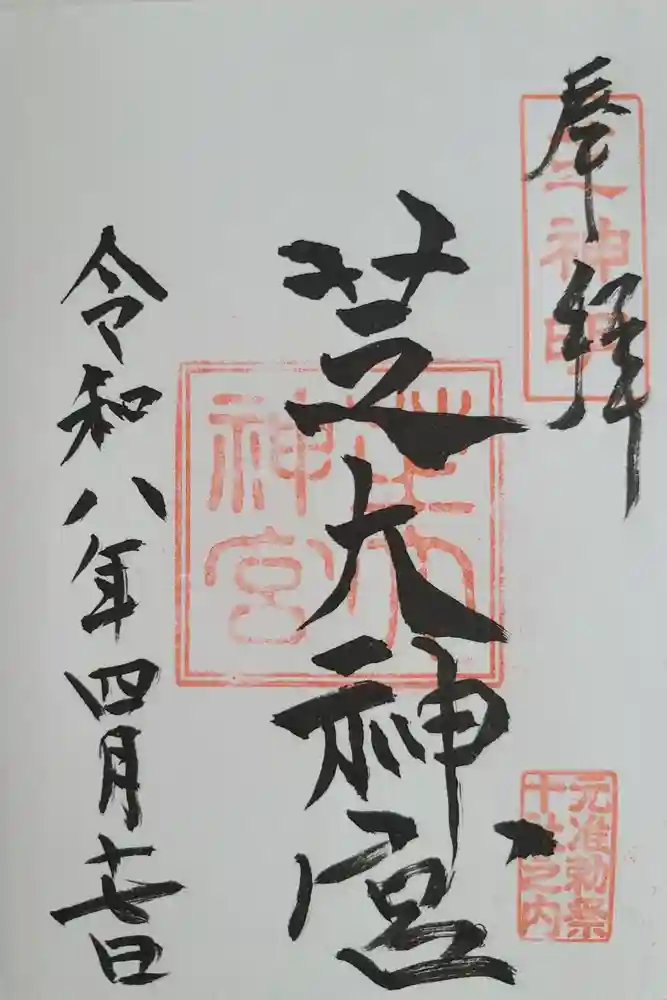 奉拝
芝神明
芝大神宮
芝大
神宮
元准勅祭
十社之内
令和八年四月十七日